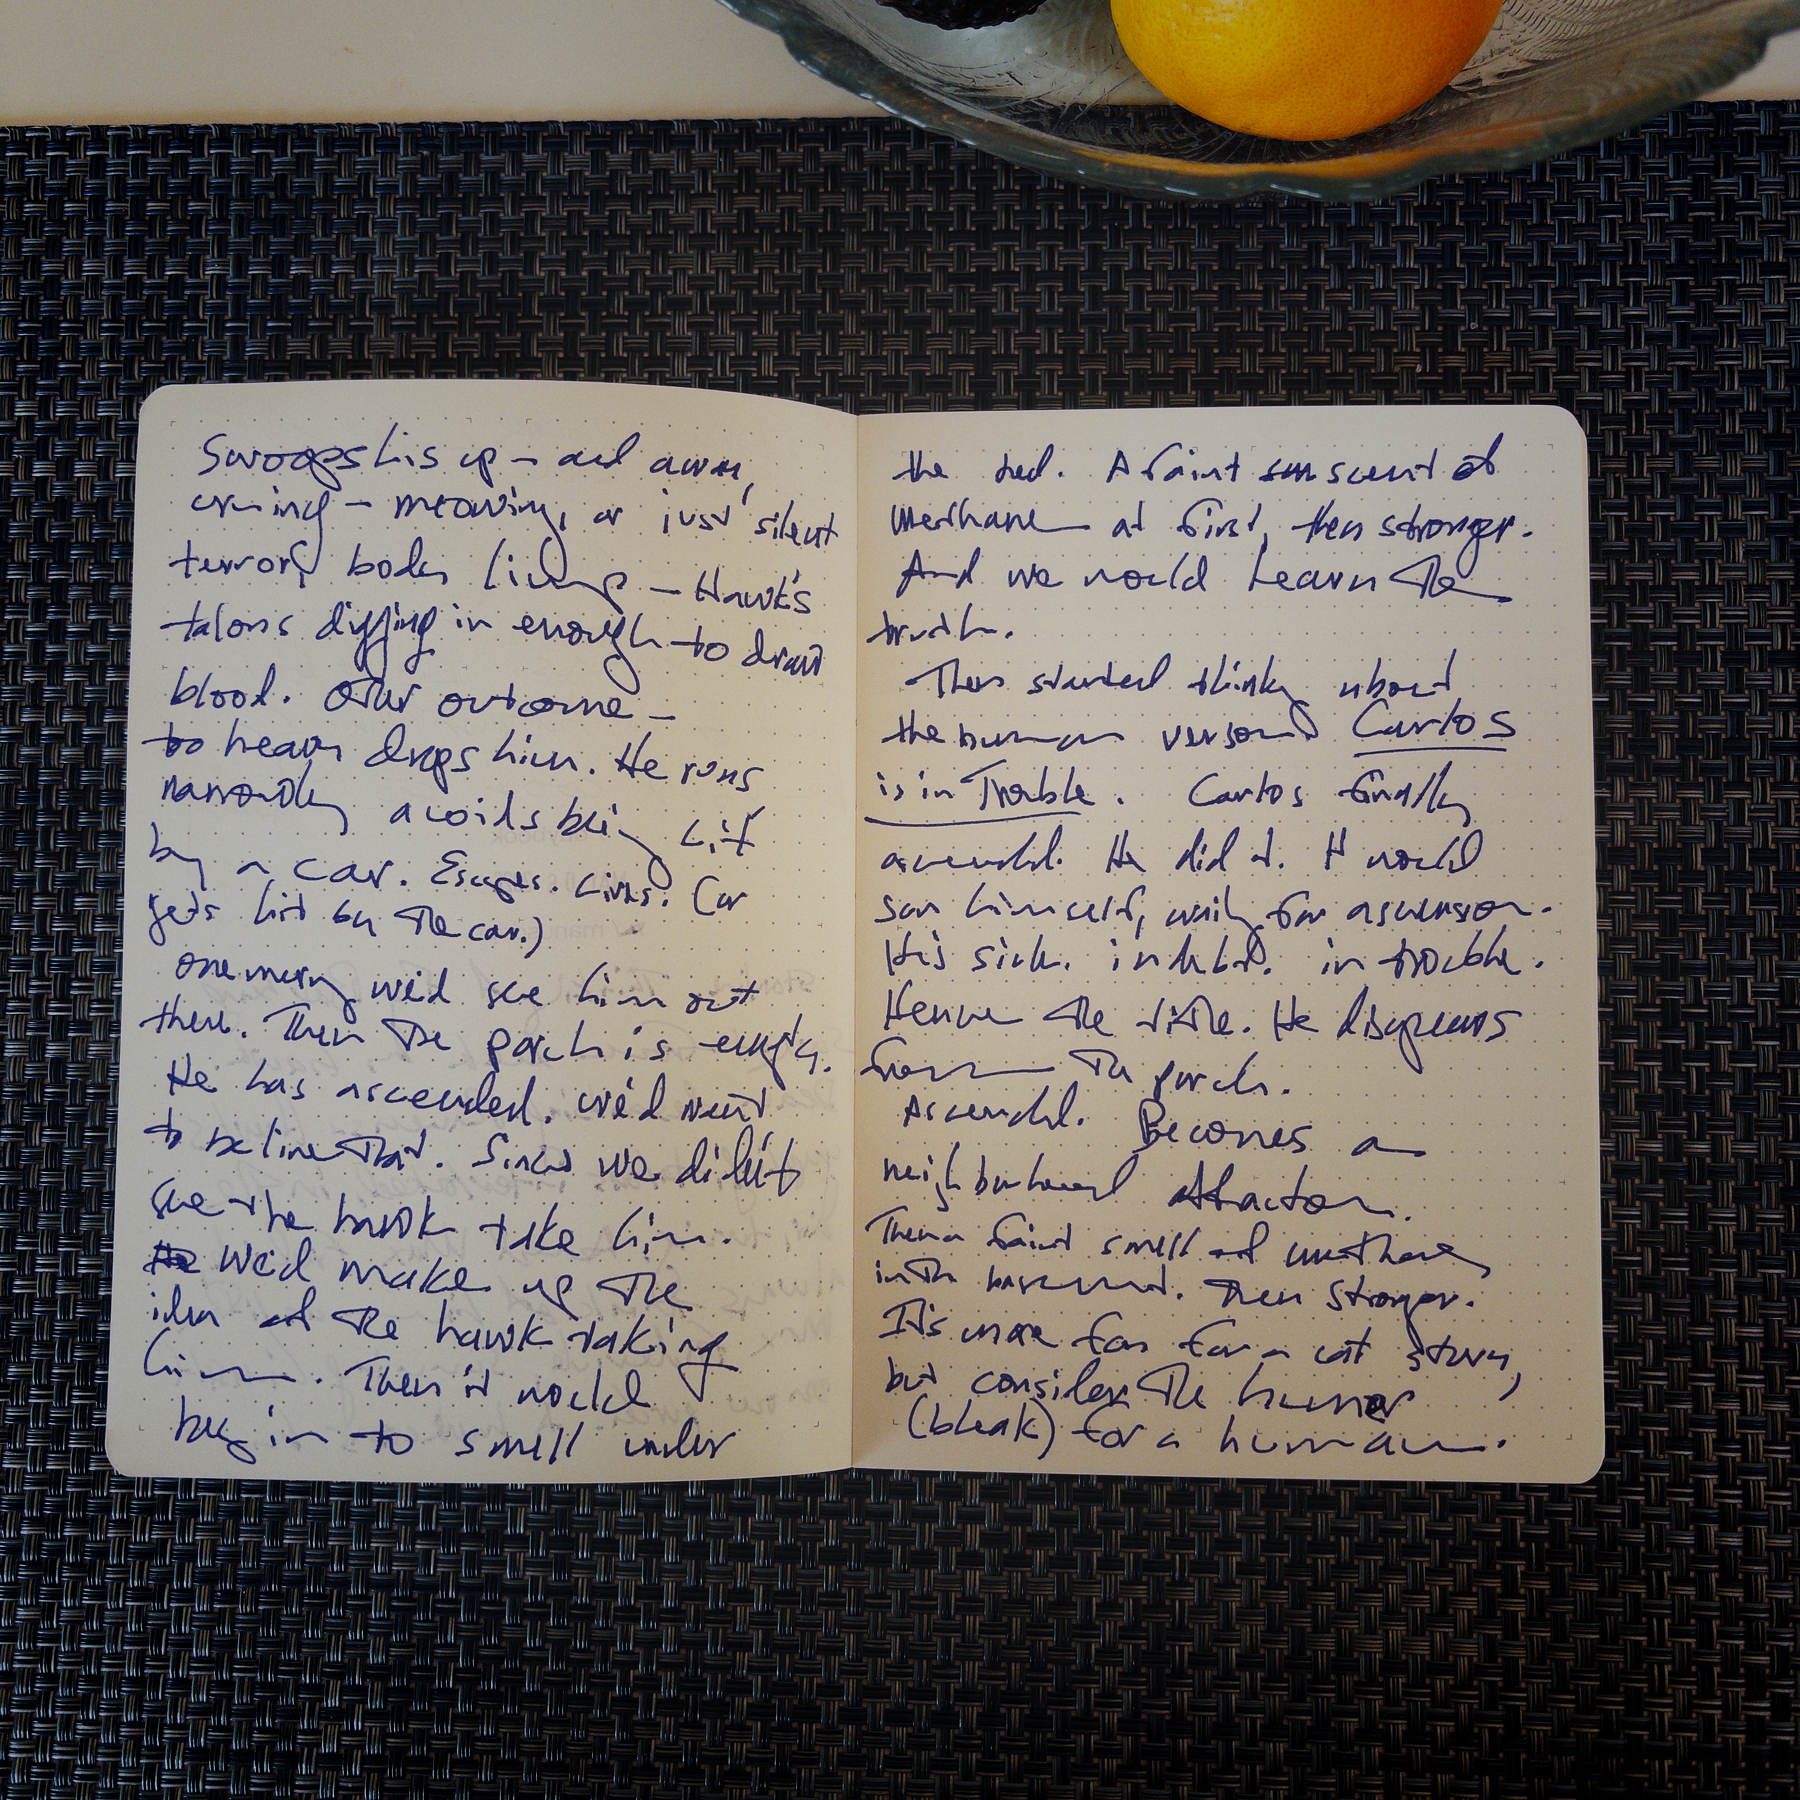 Swoops his up – and away,
crying – meowing, or just silent
terror, body limp – Hawk's
talons digging in enough to draw
blood. Other outcome –
too heavy drops him. He runs
narrowly avoids being hit
by a car. Escapes. Lives. (or
gets hit by the car.)
one morning we'd see him out
there. Then the porch is empty.
He has ascended. we'd want
to believe that. Since we didn't
see the hawk take him.
He We'd make up the
idea of the hawk taking
him. Then it would
begin to smell under
the bed. A faint scent of
Methane at first, then stronger.
And we would learn the
truth.
Then started thinking about
the human version Carlos
is in Trouble. Carlos finally
ascended. He did it. He would
sun himself, waiting for ascension.
He's sick. in debt. in trouble.
Hence the title. He disappears
from the porch.
Ascended. Becomes a
neighborhood attraction.
Then a faint smell of methane
in the basement. Then Stronger.
It's more fun for a cat story,
but consider the humor
(bleak) for a human.